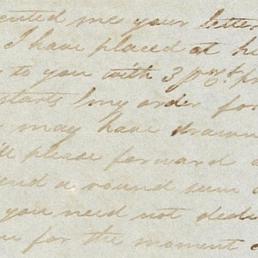 me your letter
I have placed at he
to you with 3 pr ct pr
starts my order for
may have drawn
please forward a
end a round sum o
you need not dedu
for the moment